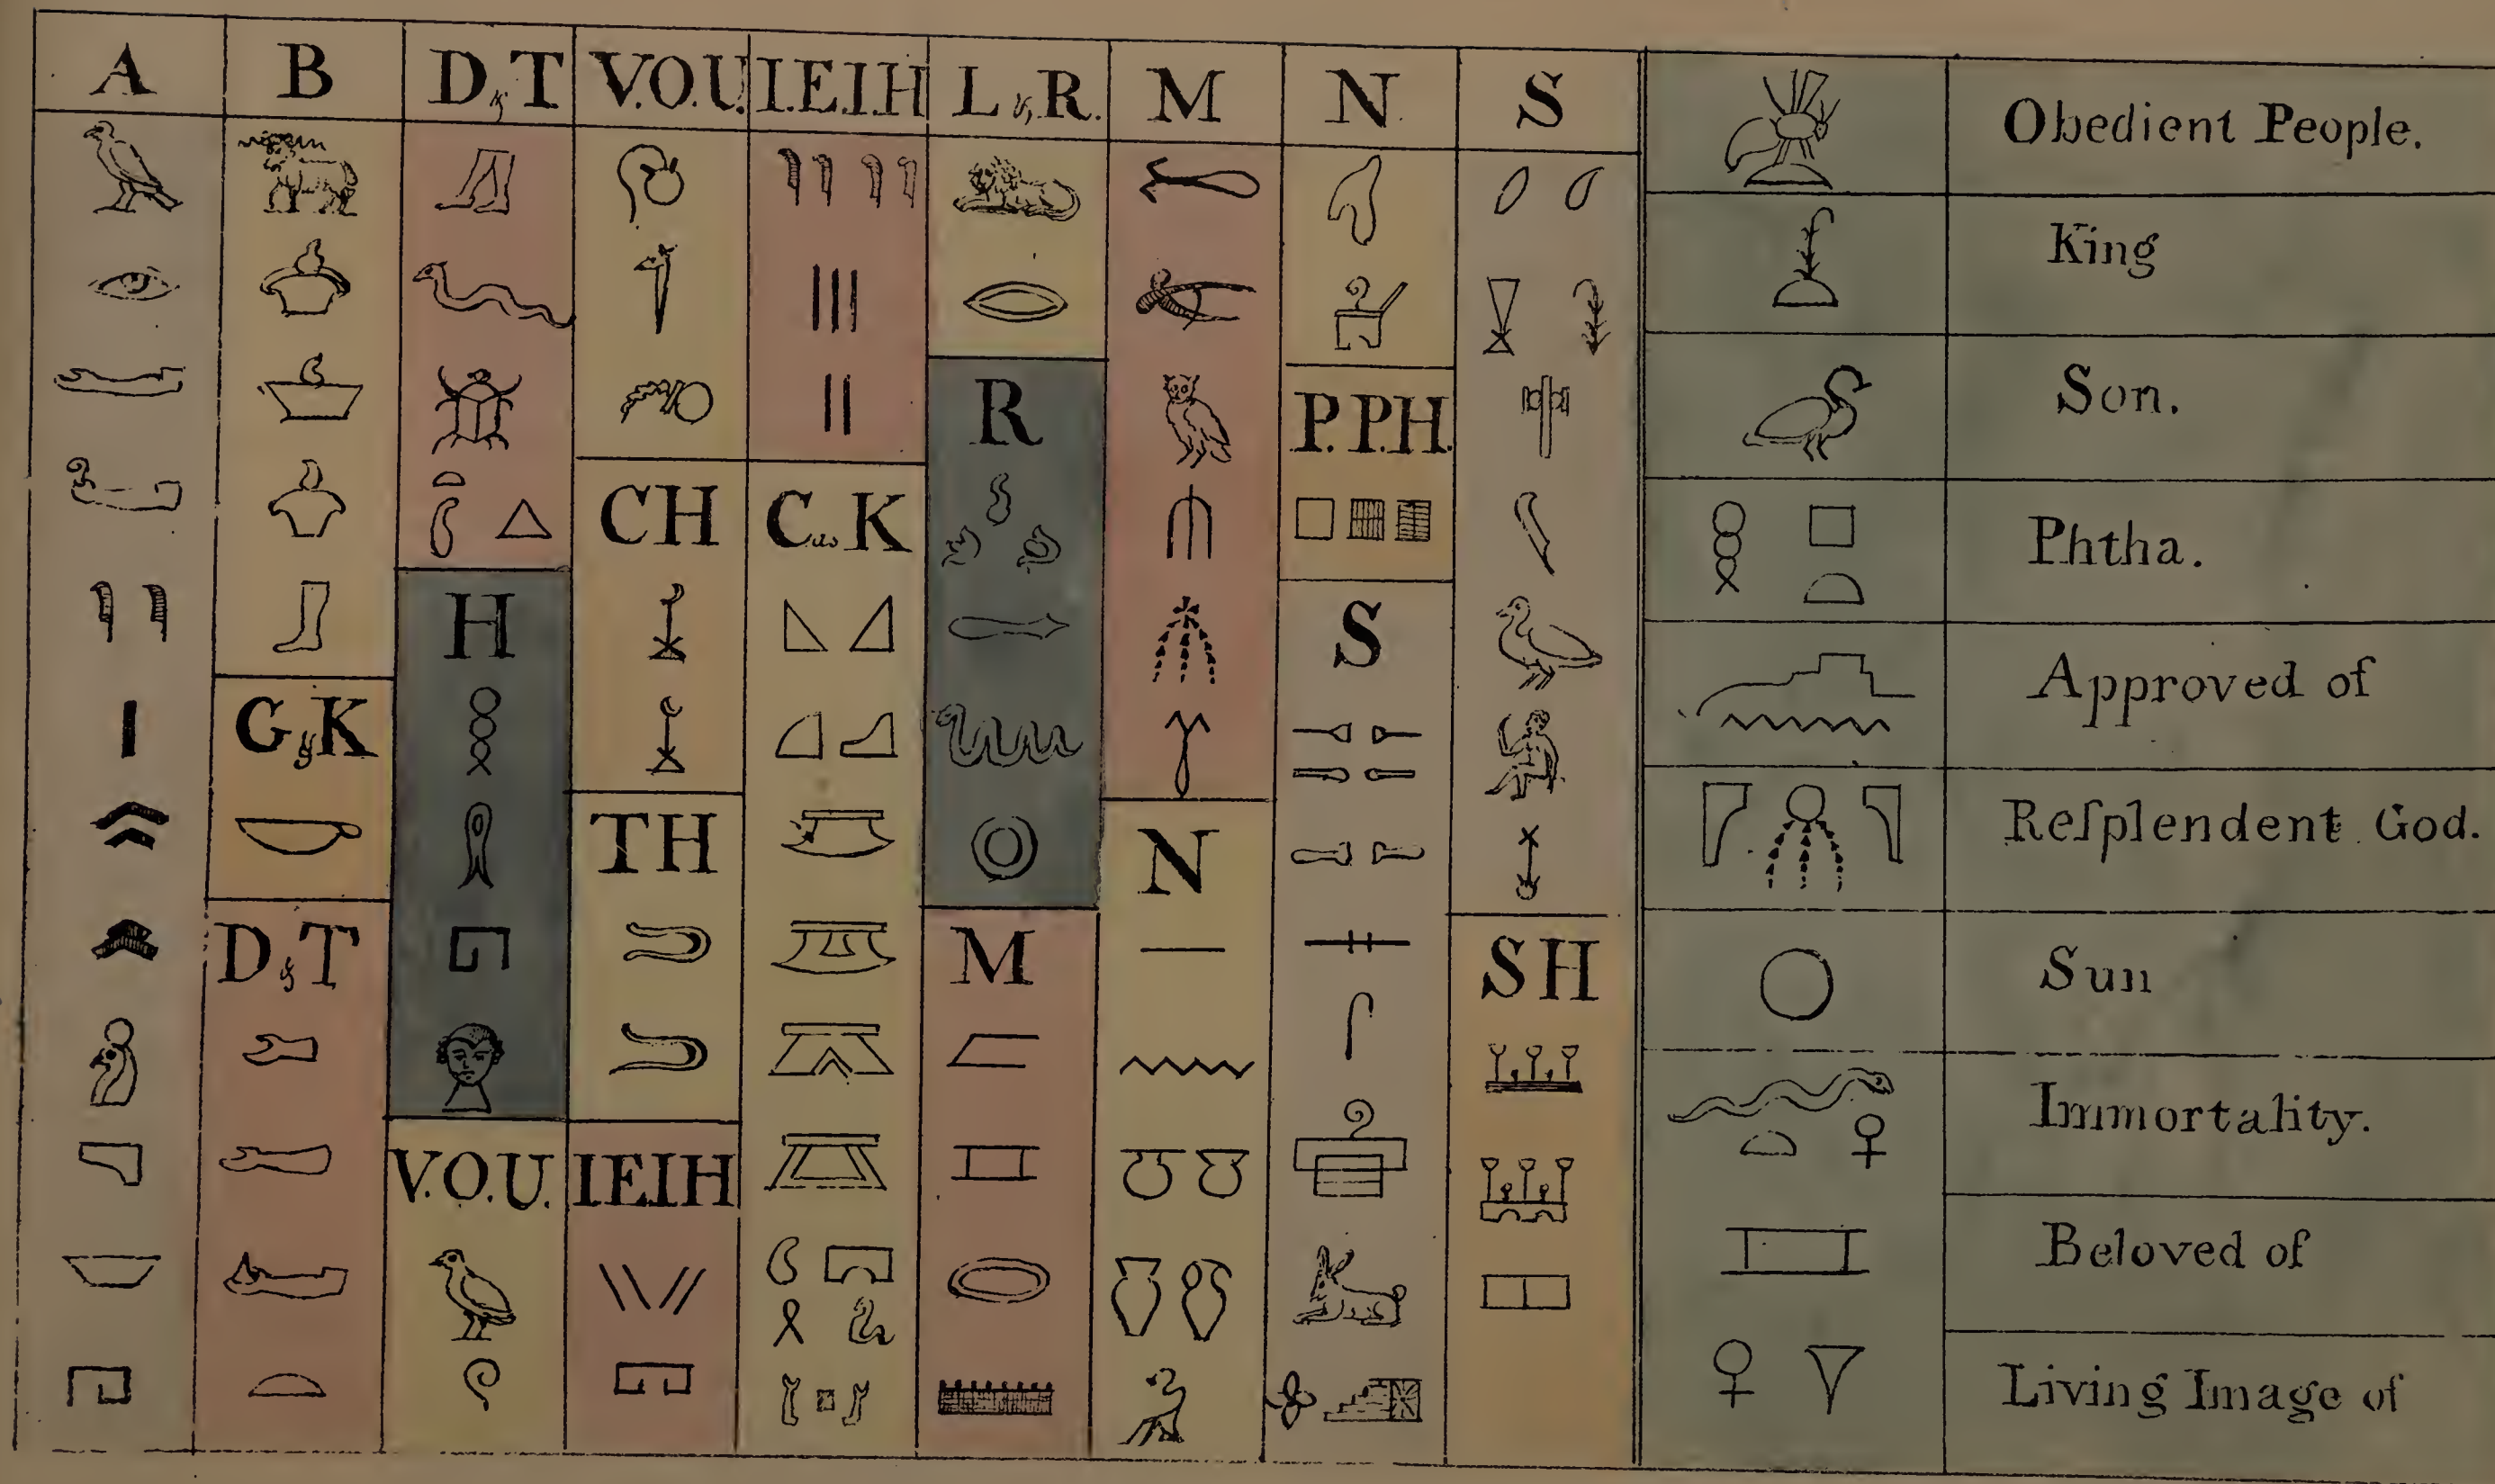 A
B
G & K
D & T
D & T
H
V.O.U.
V.O.U.
CH
TH
IEIH
I.E.I.H
C as K
L & R.
R
M
M
N
N
P. P.H.
S
S
SH
Obedient People.
King
Son.
Phtha.
Approved of
Reſplendent God.
Sun
Immortality.
Beloved of
Living Image of